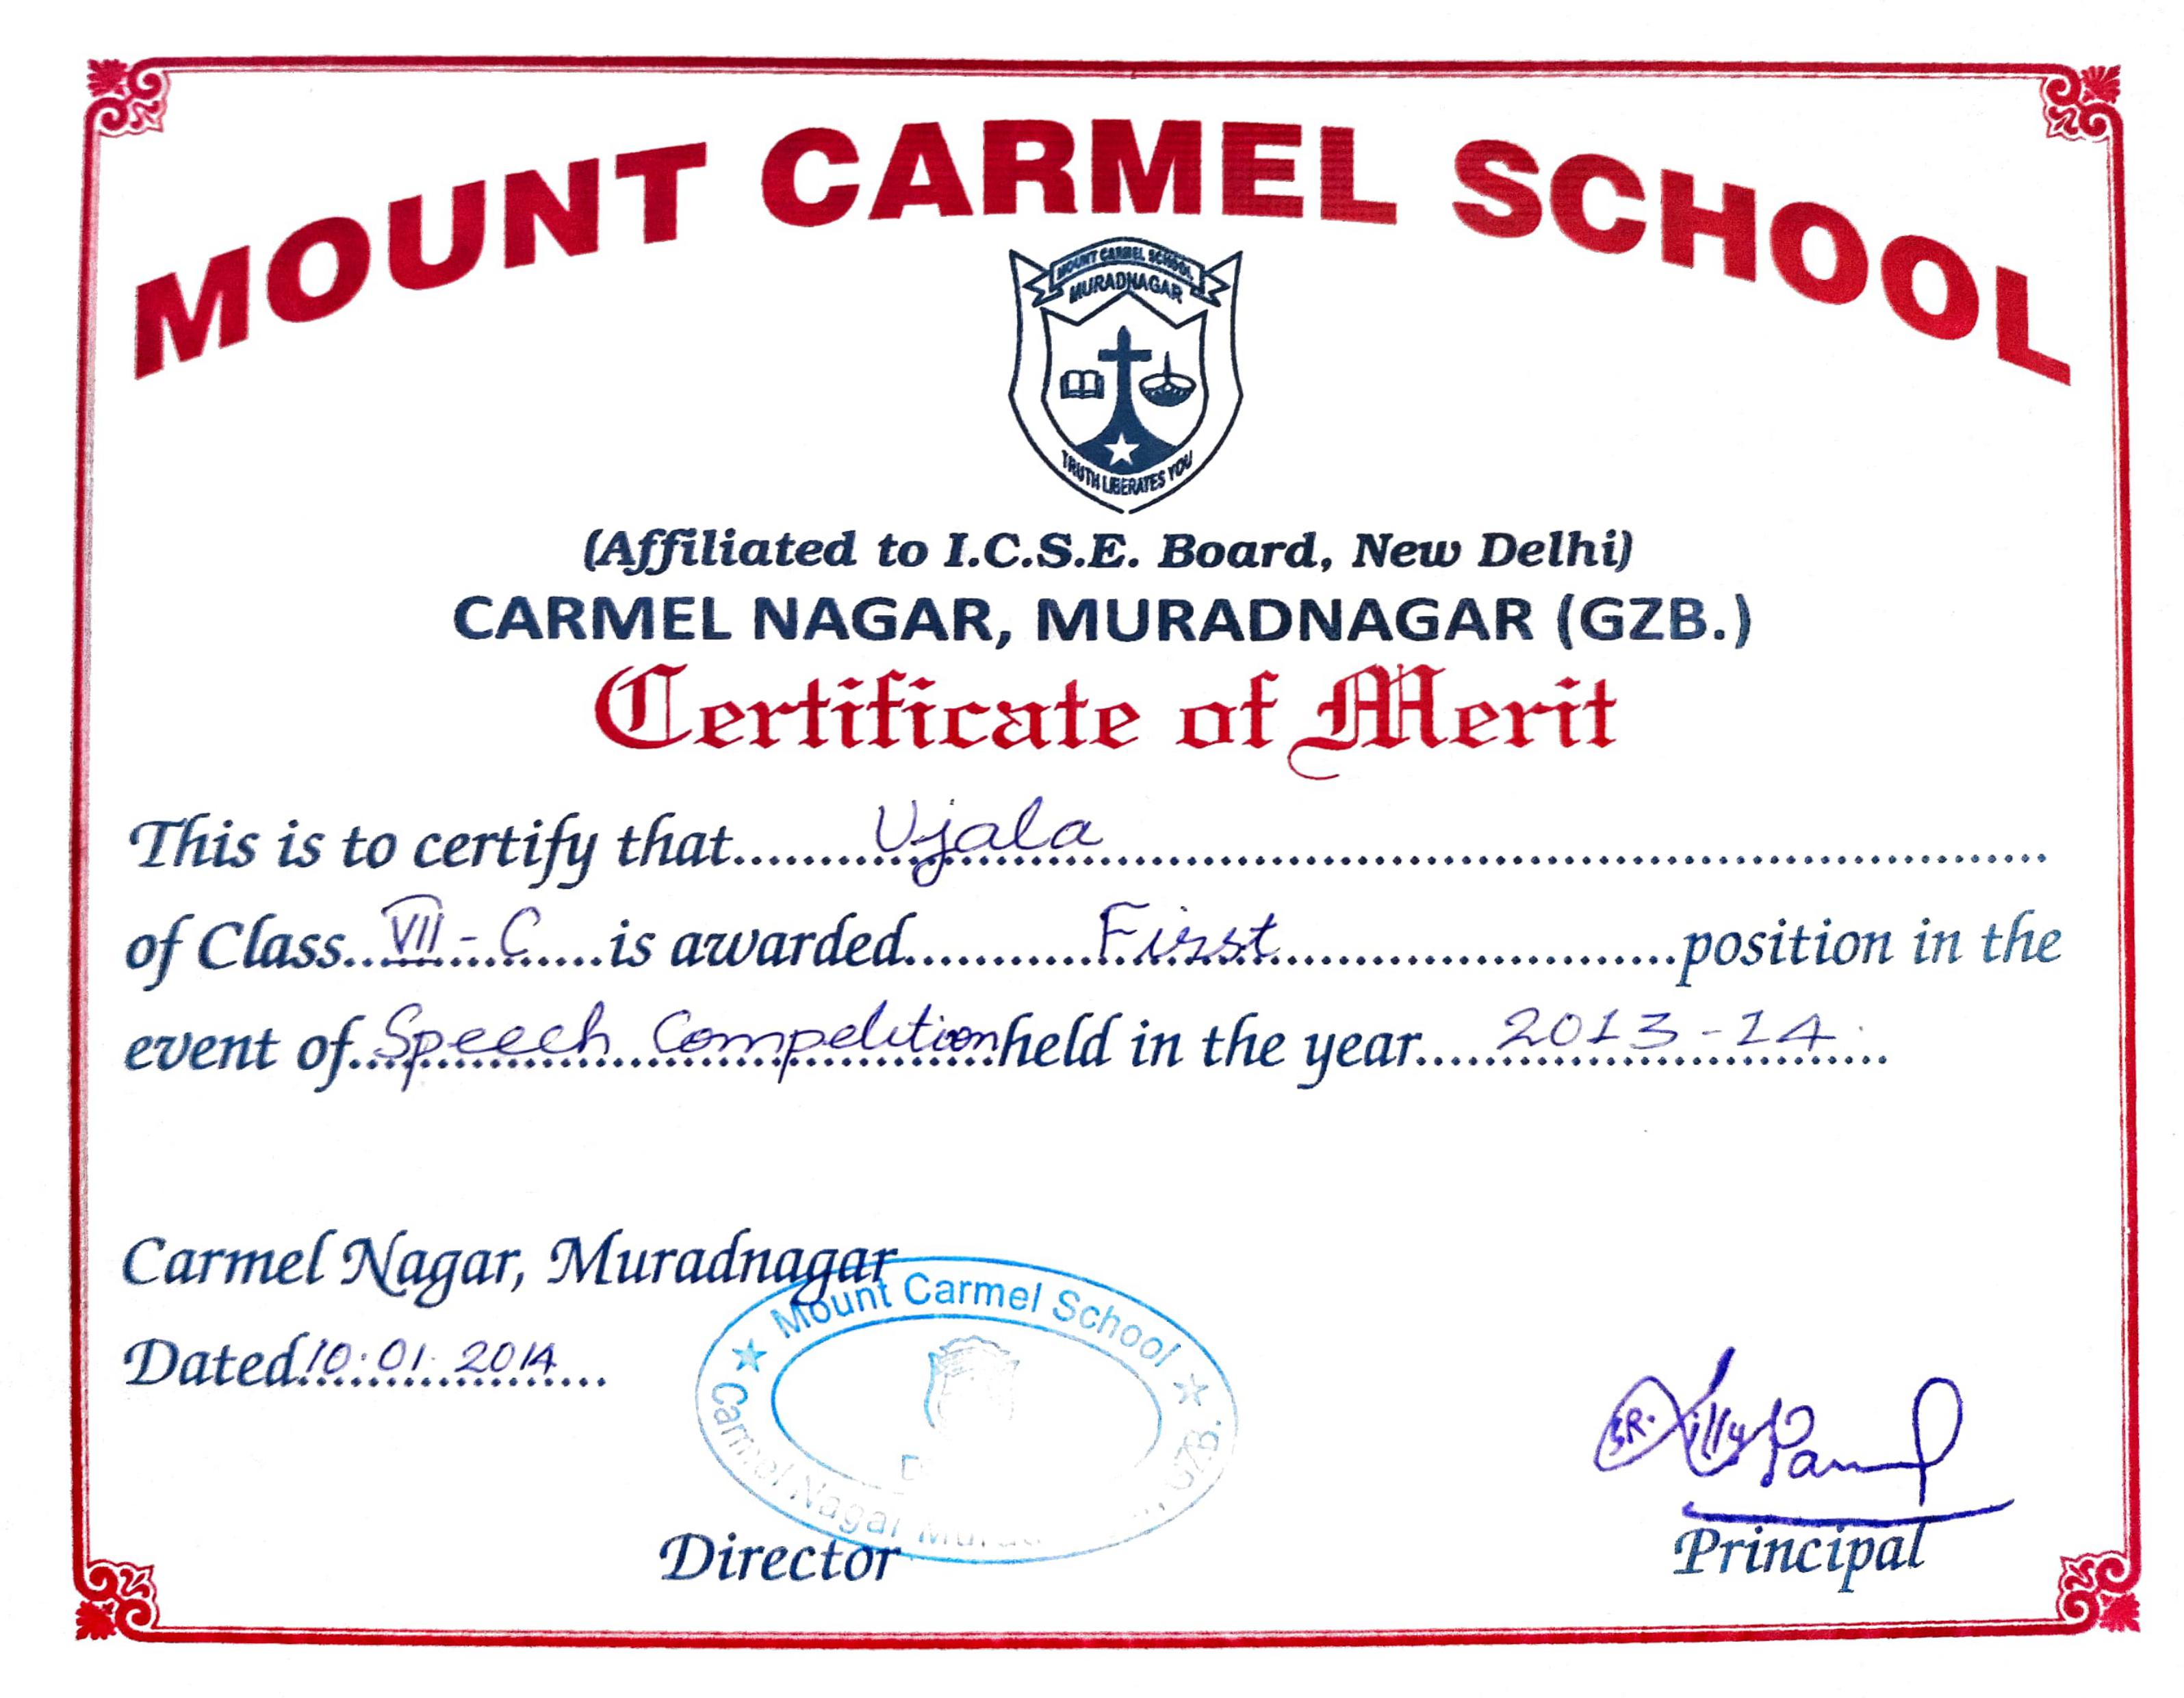 MOUNT CARMEL SCHOOL
MOUNT CARMEL SCHOOL
MURADNAGAR
TRUTH LIBERATES YOU
(Affiliated to I.C.S.E. Board, New Delhi)
CARMEL NAGAR, MURADNAGAR (GZB.)
Certificate of Merit
This is to certify that Ujala
of Class VII - C is awarded First position in the
event of Speech Competition held in the year 2013-14.
Carmel Nagar, Muradnagar
Mount Carmel School
Carmel Nagar GZB.
Dated 10.01.2014
SR. Lilly
Director
Principal